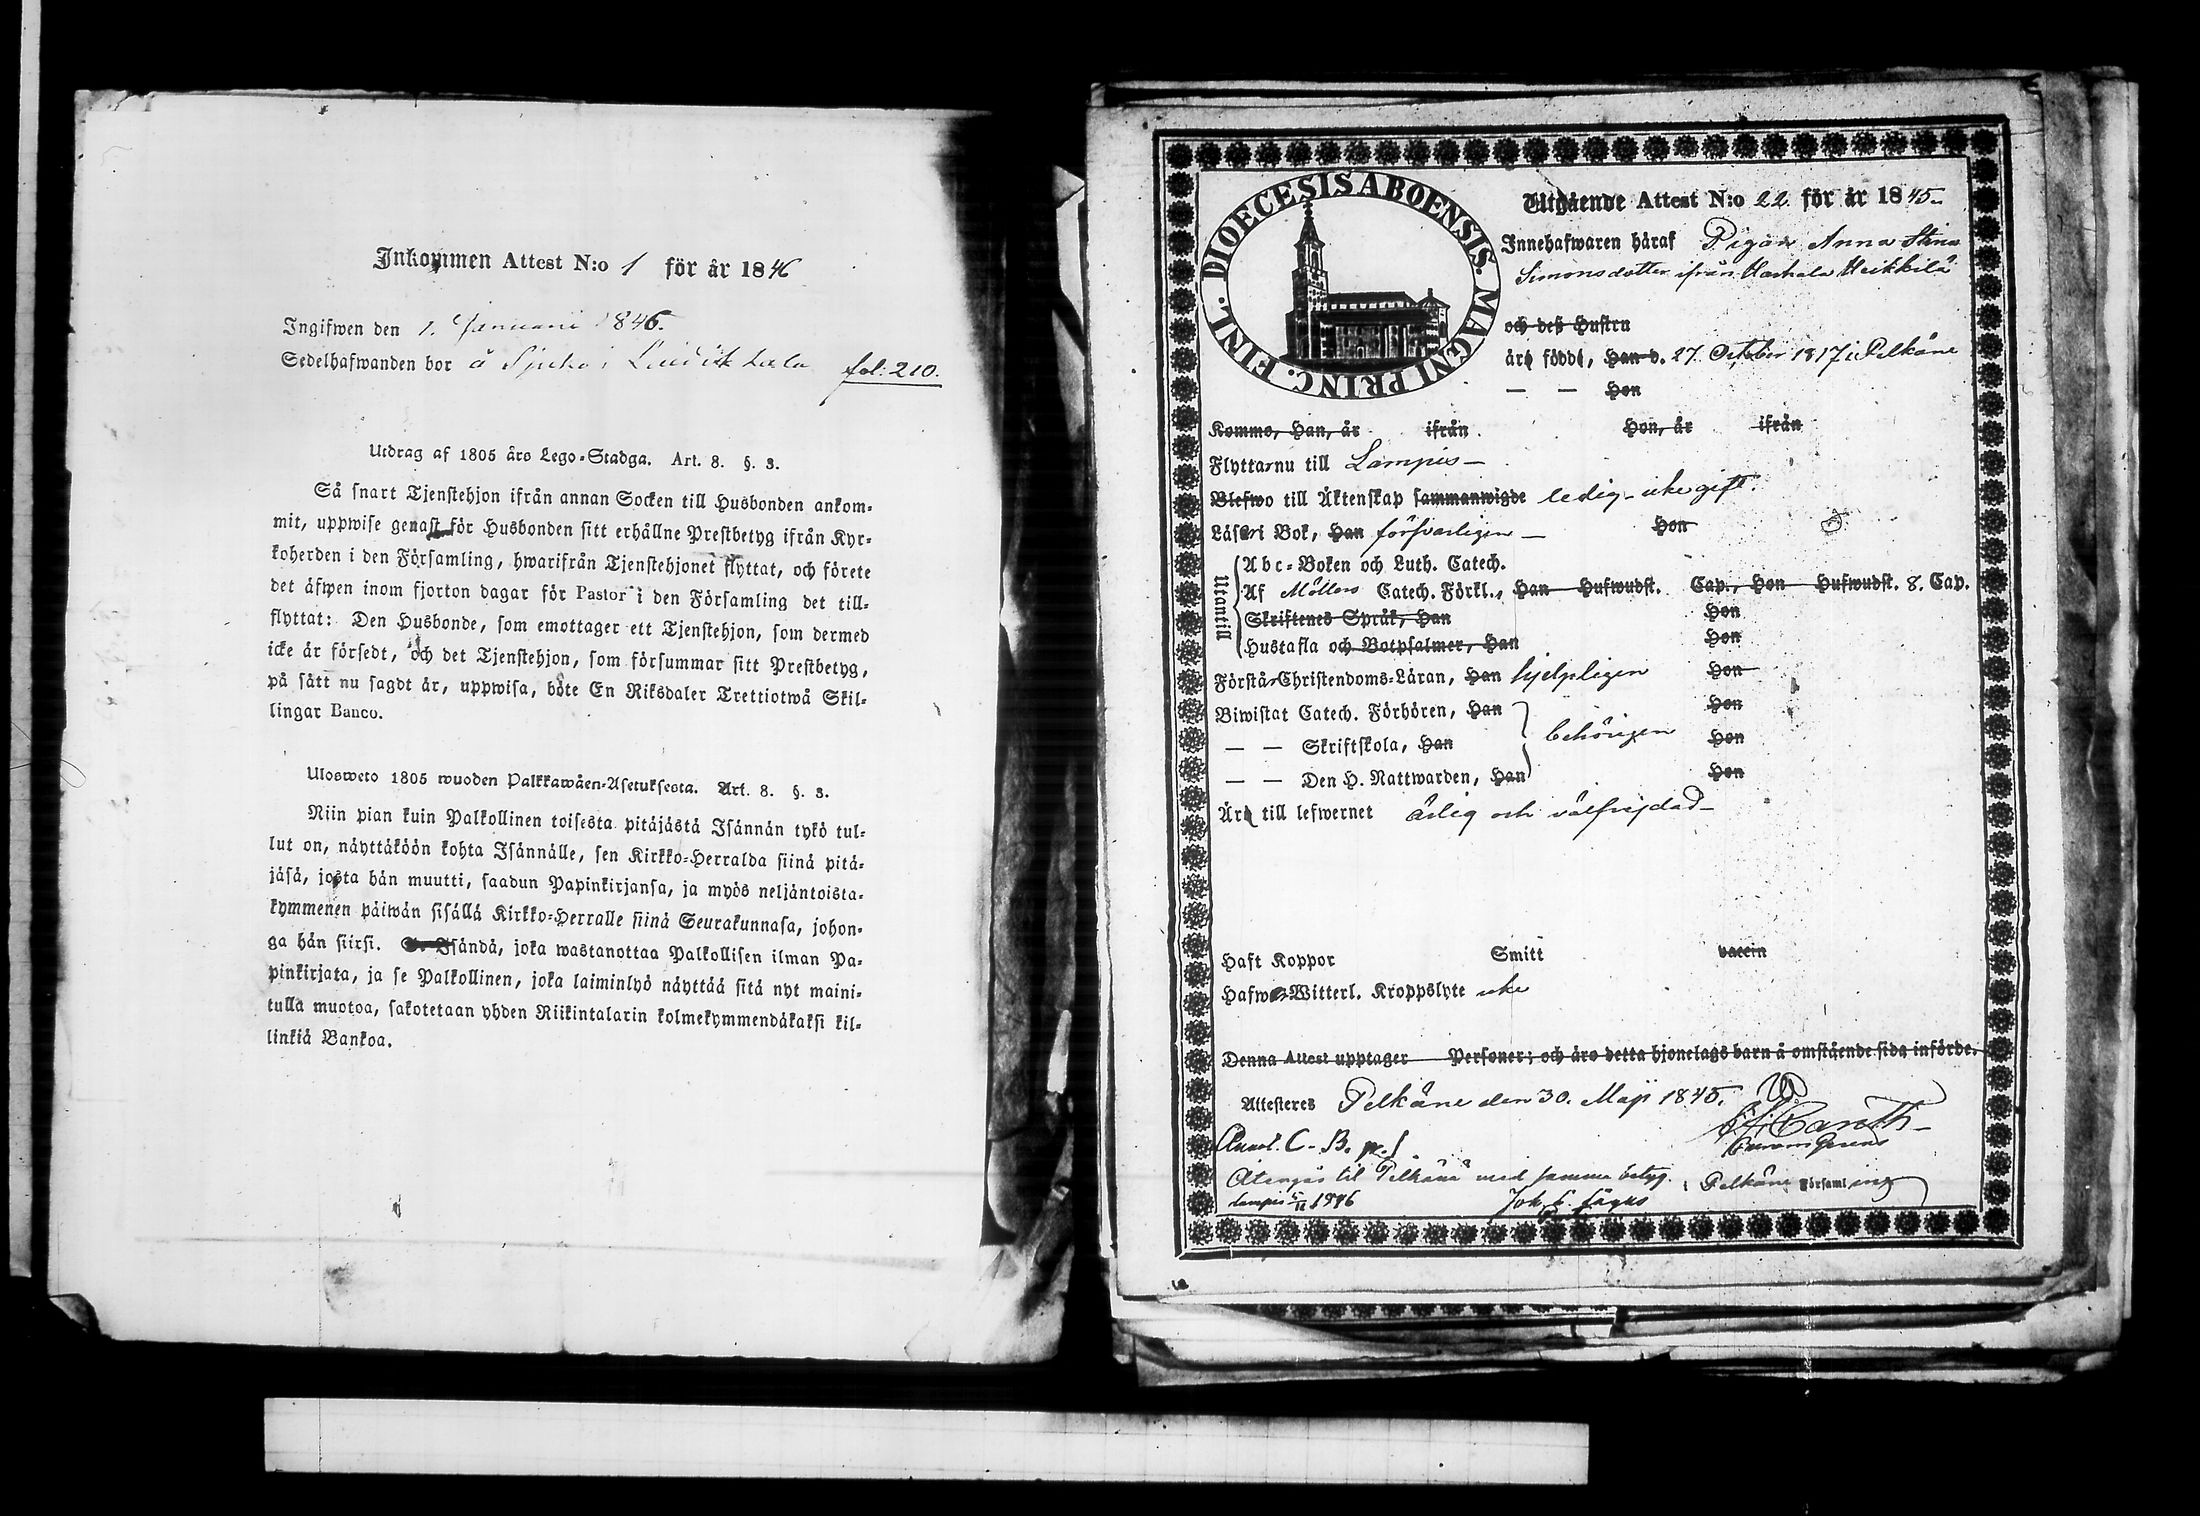 Inkommen Attest N:o 1 för år 1846
Ingifwen den 1. Januari 1846.
Sedelhafwanden bor å fol: 210.
Utdrag af 1805 års Lego-Stadga. Art. 8. §. 3.
Så snart Tjenstehjon ifrån annan Socken till Husbonden ankom-
mit, uppwise genast för Husbonden sitt erhållne Prestbetyg ifrån Kyr-
koherden i den Församling, hwarifrån Tjenstehjonet flyttat, och förete
det äfwen inom fjorton dagar för Pastor i den Församling det till-
flyttat: Den Husbonde, som emottager ett Tjenstehjon, som dermed
icke är försedt, och det Tjenstehjon, som försummar sitt Prestbetyg,
på sätt nu sagdt är, uppwisa, böte En Riksdaler Trettiotwå Skil-
lingar Banco.
Ulosweto 1805 wuoden Palkkawäen-Asetuksesta. Art. 8. §. 3.
Niin pian kuin Palkollinen toisesta pitäjästä Isännän tykö tul-
lut on, näyttäköön kohta Isännälle, sen Kirkko-Herralda siinä pitä-
jäsä, josta hän muutti, saadun Papinkirjansa, ja myös neljäntoista-
kymmenen päiwän sisällä Kirkko-Herralle siinä Seurakunnasa, johon-
ga hän siirsi. Isändä, joka wastanottaa Palkollisen ilman Pa-
pinkirjata, ja se Palkollinen, joka laiminlyö näyttää sitä nyt maini-
tulla muotoa, sakotetaan yhden Riikintalarin kolmekymmendäkaksi kil-
linkiä Bankoa.
DIOECESIS ABOENSIS. MAGNI PRINC. FINL.
Utgående Attest N:o 22 för år 1845
Innehafwaren häraf Pigan Anna Stina
Simonsdotter ifrån Harhala Heikkilä
och deß Hustru
äro födde, Han d. 27. October 1817 i Pelkäne
— — Hon
Komme, Han, år ifrån Hon, år ifrån
Flyttar nu till Lampis
Blefwo till Äktenskap sammanwigde ledig - icke gift
Läser i Bok, Han försvarligen Hon
Utantill
Abc-Boken och Luth. Catech.
Af Möllers Catech. Förkl., Han Hufwudst. Cap., Hon Hufwudst. 8. Cap.
Skriftenes Språk, Han Hon
Hustafla och Botpsalmer, Han Hon
Förstår Christendoms-Läran, Han hjelpligen Hon
Biwistat Catech. Förhören, Han Hon
— — Skriftskola, Han behörigen Hon
— — Den H. Nattwarden, Han Hon
Äro till lefwernet ärlig och välfrejdad
Haft Koppor Smitt vaccin
Hafwer Witterl. Kroppslyte icke
Denna Attest upptager Personer; och äro detta hjonelags barn å omstående sida införde.
Attesteres Pelkäne den 30. Maji 1845.
Annot. C. B. p.
Återgår til Pelkäne med samma betyg. i Pelkäne Församling
Lampis 1846 Joh.